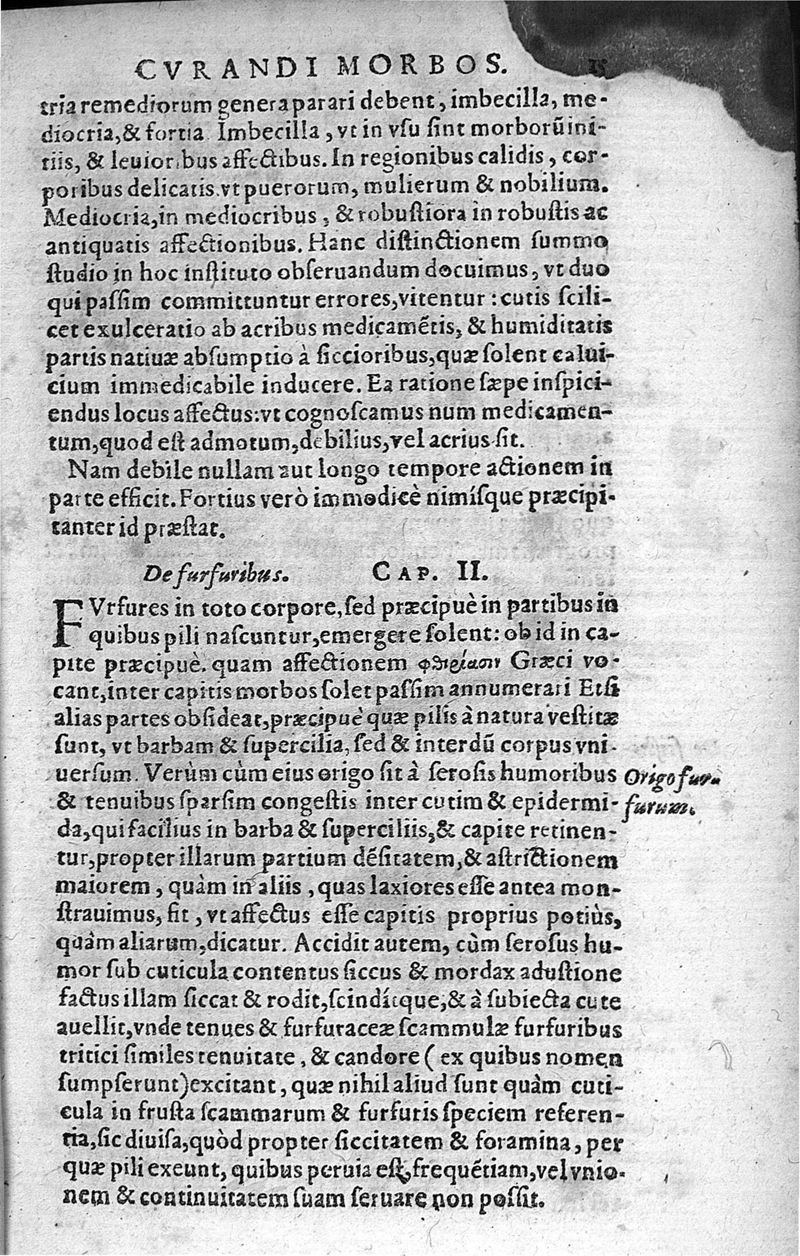 CVRANDI MORBOS. 15
tria remediorum genera parari debent, imbecilla, me-
diocria, & fortia. Imbecilla, vt in vsu sint morborũ ini-
tiis, & leuioribus affectibus. In regionibus calidis, cor-
poribus delicatis. vt puerorum, mulierum & nobilium.
Mediocria, in mediocribus, & robustiora in robustis ac
antiquatis affectionibus. Hanc distinctionem summo
studio in hoc instituto obseruandum docuimus, vt duo
qui passim committuntur errores, vitentur: cutis scili-
cet exulceratio ab acribus medicamẽtis, & humiditatis
partis natiuæ absumptio à siccioribus, quæ solent calui-
cium immedicabile inducere. Ea ratione sæpe inspici-
endus locus affectus: vt cognoscamus num medicamen-
tum, quod est admotum, debilius, vel acrius sit.
Nam debile nullam aut longo tempore actionem in
parte efficit. Fortius verò immodicè nimísque præcipi-
tanter id præstat.
De furfuribus. CAP. II.
FVrfures in toto corpore, sed præcipuè in partibus in
quibus pili nascuntur, emergere solent: ob id in ca-
pite præcipuè. quam affectionem φθειρίασιν Græci vo-
cant, inter capitis morbos solet passim annumerari Etsi
alias partes obsideat, præcipuè quæ pilis à natura vestitæ
sunt, vt barbam & supercilia, sed & interdũ corpus vni-
uersum. Verùm cùm eius origo sit à serosis humoribus
Origo fur-
& tenuibus sparsim congestis inter cutim & epidermi-
furum.
da, qui facilius in barba & superciliis, & capite retinen-
tur, propter illarum partium dẽsitatem, & astrictionem
maiorem, quàm in aliis, quas laxiores esse antea mon-
strauimus, fit, vt affectus esse capitis proprius potiùs,
quàm aliarum, dicatur. Accidit autem, cùm serosus hu-
mor sub cuticula contentus siccus & mordax adustione
factus illam siccat & rodit, scindítque, & à subiecta cute
auellit, vnde tenues & furfuraceæ scammulæ furfuribus
tritici similes tenuitate, & candore (ex quibus nomen
sumpserunt) excitant, quæ nihil aliud sunt quàm cuti-
cula in frusta scammarum & furfuris speciem referen-
tia, sic diuisa, quòd propter siccitatem & foramina, per
quæ pili exeunt, quibus peruia est, frequẽtiam, vel vnio-
nem & continuitatem suam seruare non possit.